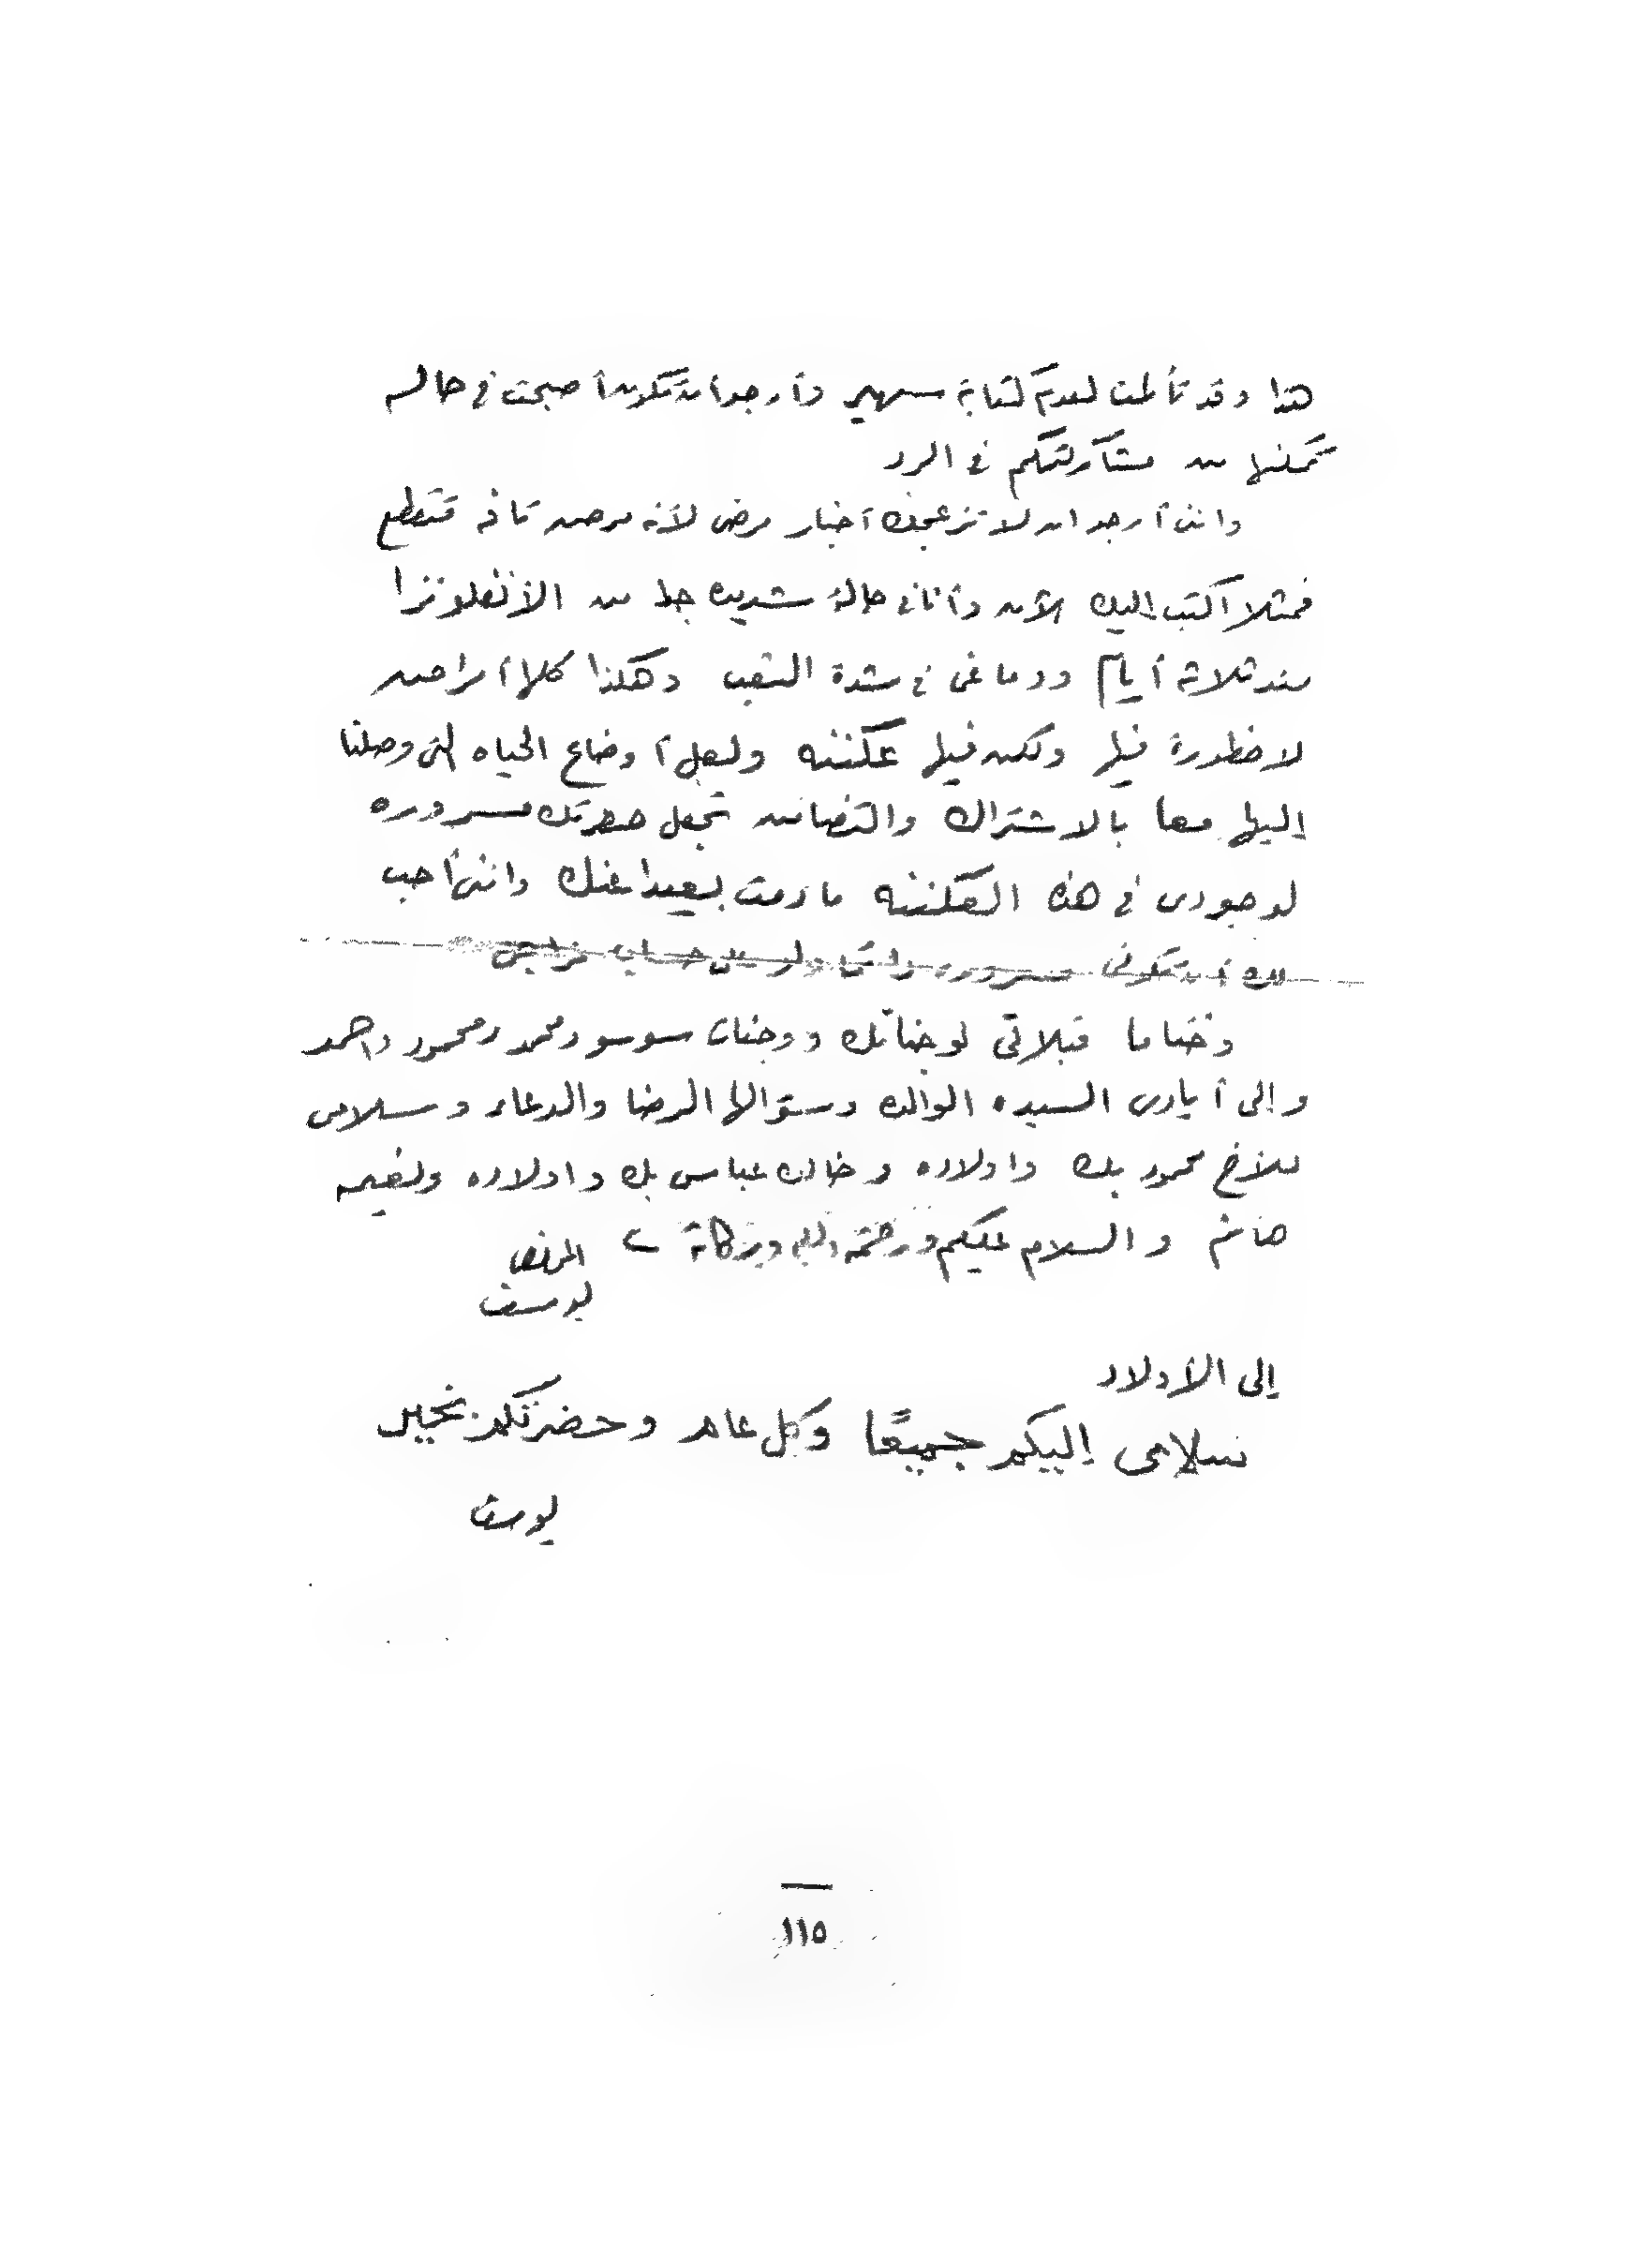 هذا وقد تألمت لعدم كتابة سهير وأرجو أن تكون أصبحت في حاله
تمكنها من مشاركتكم في الرد
وانني أرجو ان لا تزعجك أخبار مرضى لأنه مرض تافه متقطع
فمثلا اكتب إليك الآن وأنا في حالة شديده جدا من الأنفلونزا
منذ ثلاثة أيام ودماغى في شدة التعب وهكذا كلها أمراض
لا خطورة فيها ولكن فيها عكننه ولعل أوضاع الحياه التى وصلنا
إليها معا بالاشتراك والتضامن تجعل حضرتك مسروره
لوجودى في هذه العكننه ما دمت بعيدا عنك وانني أحب
لك أن تكونى مسروره دائما ولو على حساب مزاجى
وختاما قبلاتى لوجناتك ووجنات سوسو ومحمد ومحمود واحمد
وإلى أيادى السيده الوالده وسؤالها الرضا والدعاء وسلامى
للأخ محمود بك واولاده وخالك عباس بك واولاده ونعيمه
هانم والسلام عليكم ورحمة الله وبركاته المخلص
يوسف
إلى الأولاد
سلامى إليكم جميعًا وكل عام وحضرتكم بخير
يوسف
١١٥